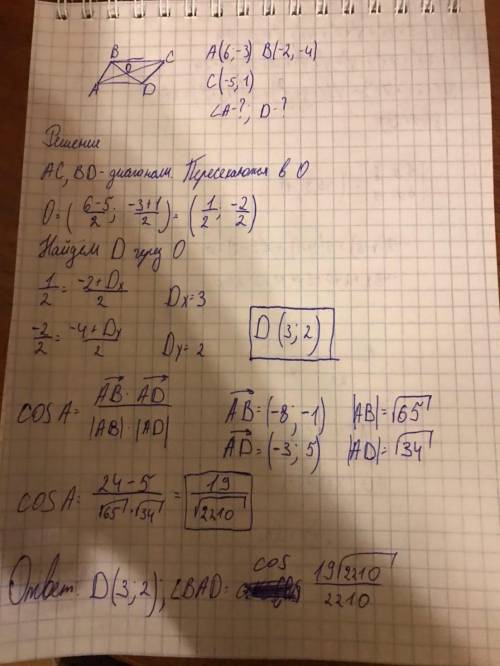 B C
O
A D
A(6;-3) B(-2,-4)
C(-5;1)
∠A-?; D-?
Решение
AC, BD-диагонали. Пересекаются в O
O=(\frac{6-5}{2}; \frac{-3+1}{2})=(\frac{1}{2}; \frac{-2}{2})
Найдем D через O
\frac{1}{2}=\frac{-2+Dx}{2} Dx=3
\frac{-2}{2}=\frac{-4+Dy}{2} Dy=2
D(3;2)
COS A=\frac{\vec{AB}·\vec{AD}}{|AB|·|AD|}
\vec{AB}=(-8;-1) |AB|=√65
\vec{AD}=(-3;5) |AD|=√34
COS A=\frac{24-5}{√65·√34}=\frac{19}{√2210}
Ответ: D(3;2); ∠BAD= cos \frac{19√2210}{2210}